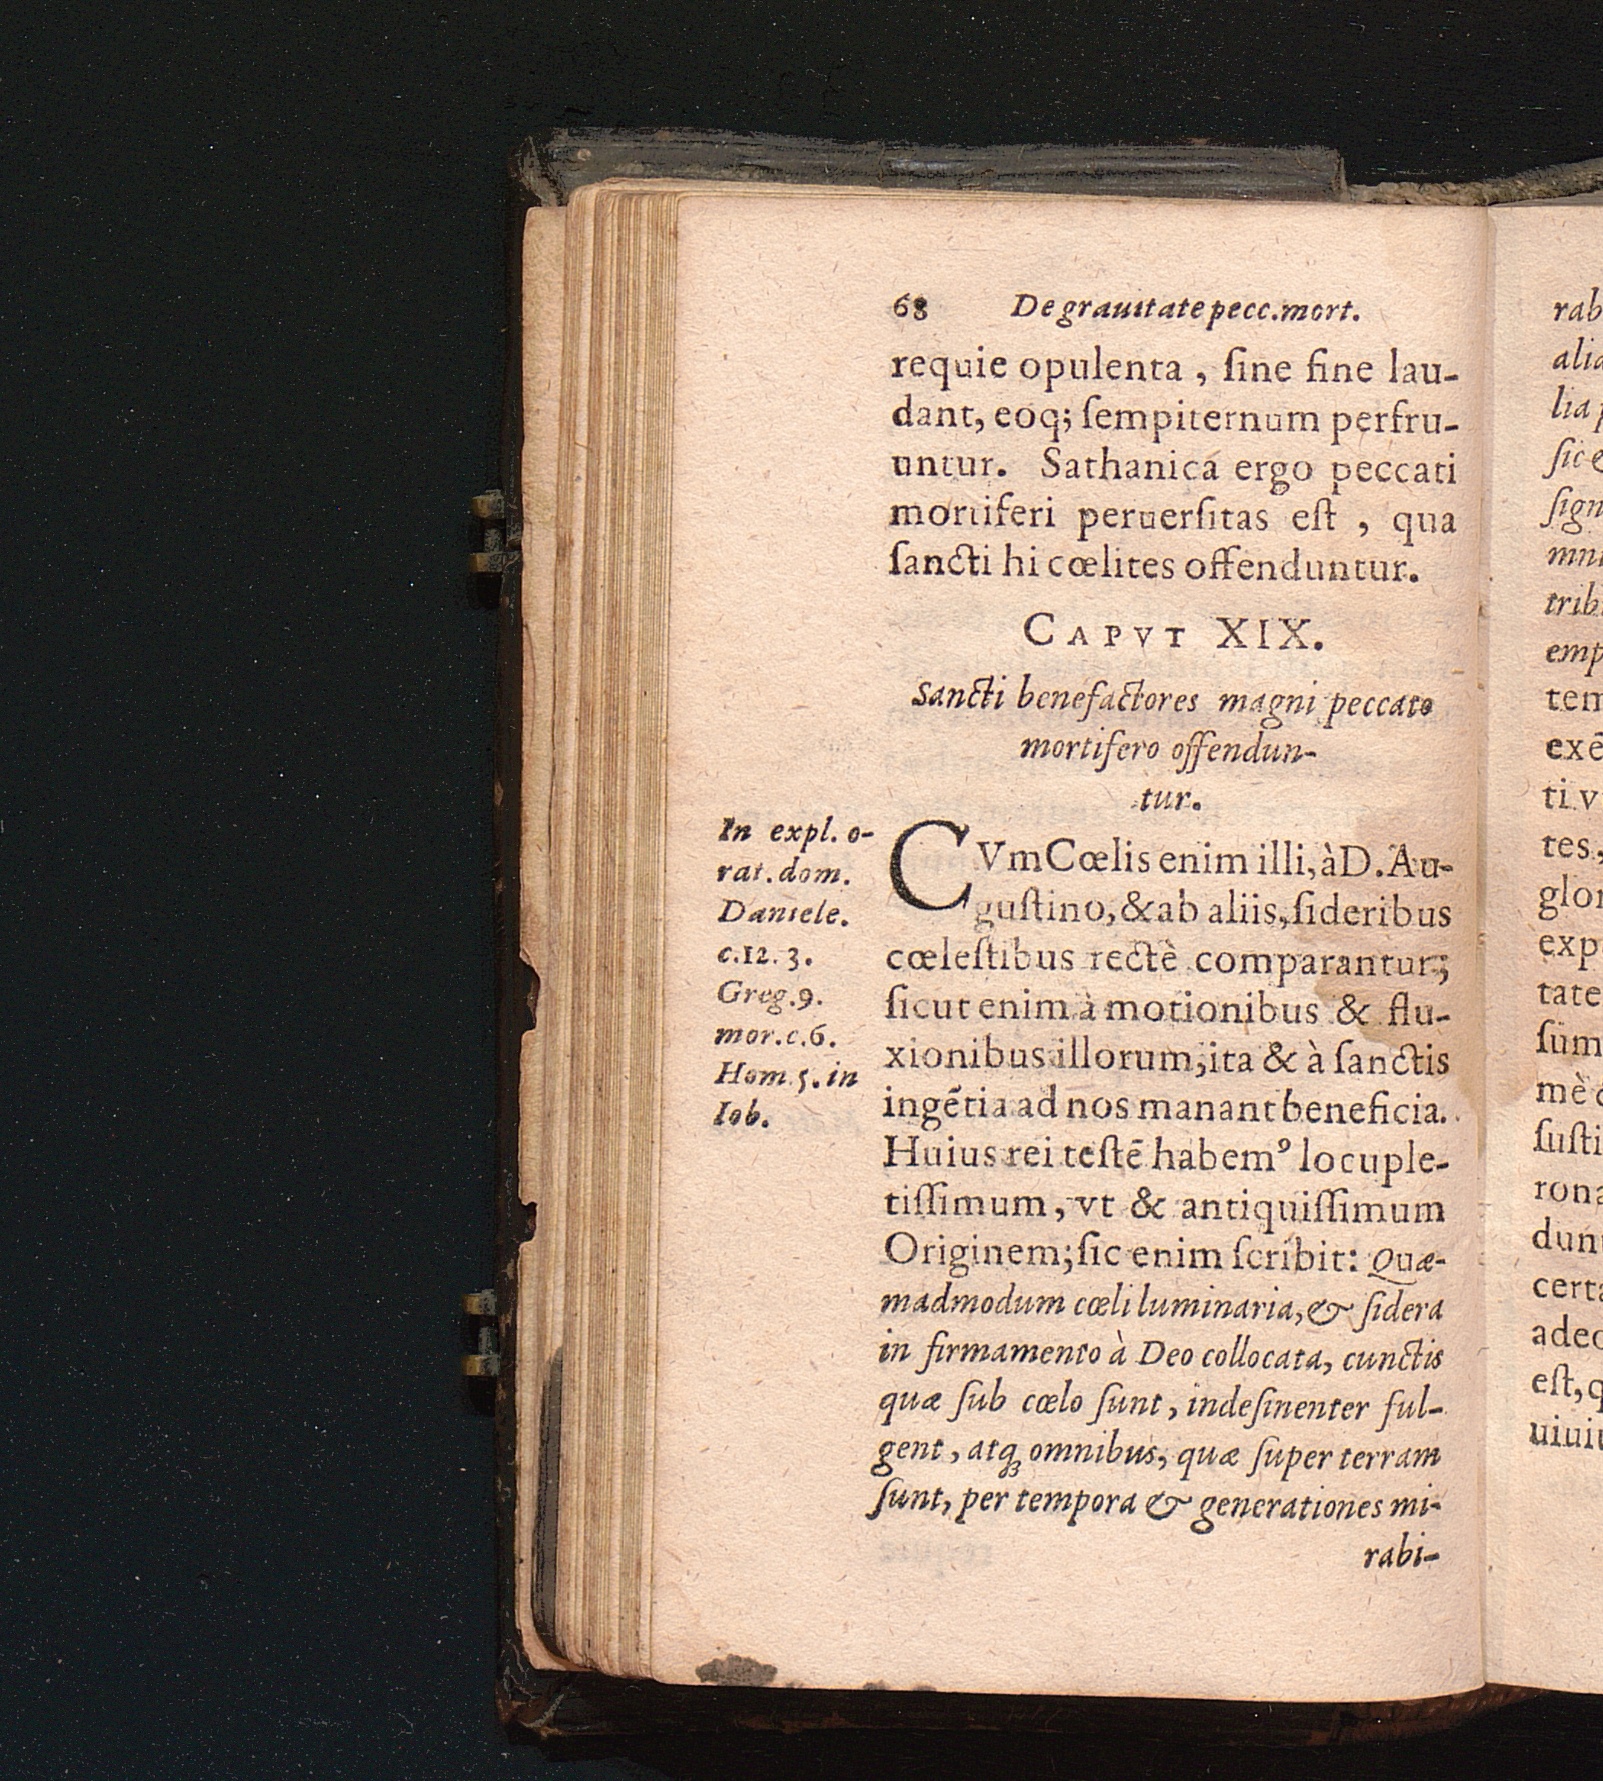 68 De grauitate pecc. mort.
requie opulenta, ſine fine lau-
dant, eoq; ſempiternum perfru-
untur. Sathanica ergo peccati
mortiferi peruerſitas eſt, qua
ſancti hi cœlites offenduntur.
CAPVT XIX.
Sancti benefactores magni peccato
mortifero offendun-
tur.
In expl. o-
rat. dom.
Daniele.
c.12. 3.
Greg. 9.
mor. c. 6.
Hom. 5. in
Iob.
CVm Cœlis enim illi, à D. Au-
guſtino, & ab aliis, ſideribus
cœleſtibus rectè comparantur;
ſicut enim à motionibus & flu-
xionibus illorum; ita & à ſanctis
ingẽtia ad nos manant beneficia.
Huius rei teſtẽ habemꝰ locuple-
tiſſimum, vt & antiquiſſimum
Originem; ſic enim ſcribit: Quæ-
madmodum cœli luminaria, & ſidera
in firmamento à Deo collocata, cunctis
quæ ſub cœlo ſunt, indeſinenter ful-
gent, atq; omnibus, quæ ſuper terram
ſunt, per tempora & generationes mi-
rabi-
rab
alia
lia
ſic
ſign
mni
trib
emp
tem
exẽ
ti v
tes,
glor
exp
tate
ſum
mè
ſuſti
rona
dun
certa
adeo
eſt, q
uiui